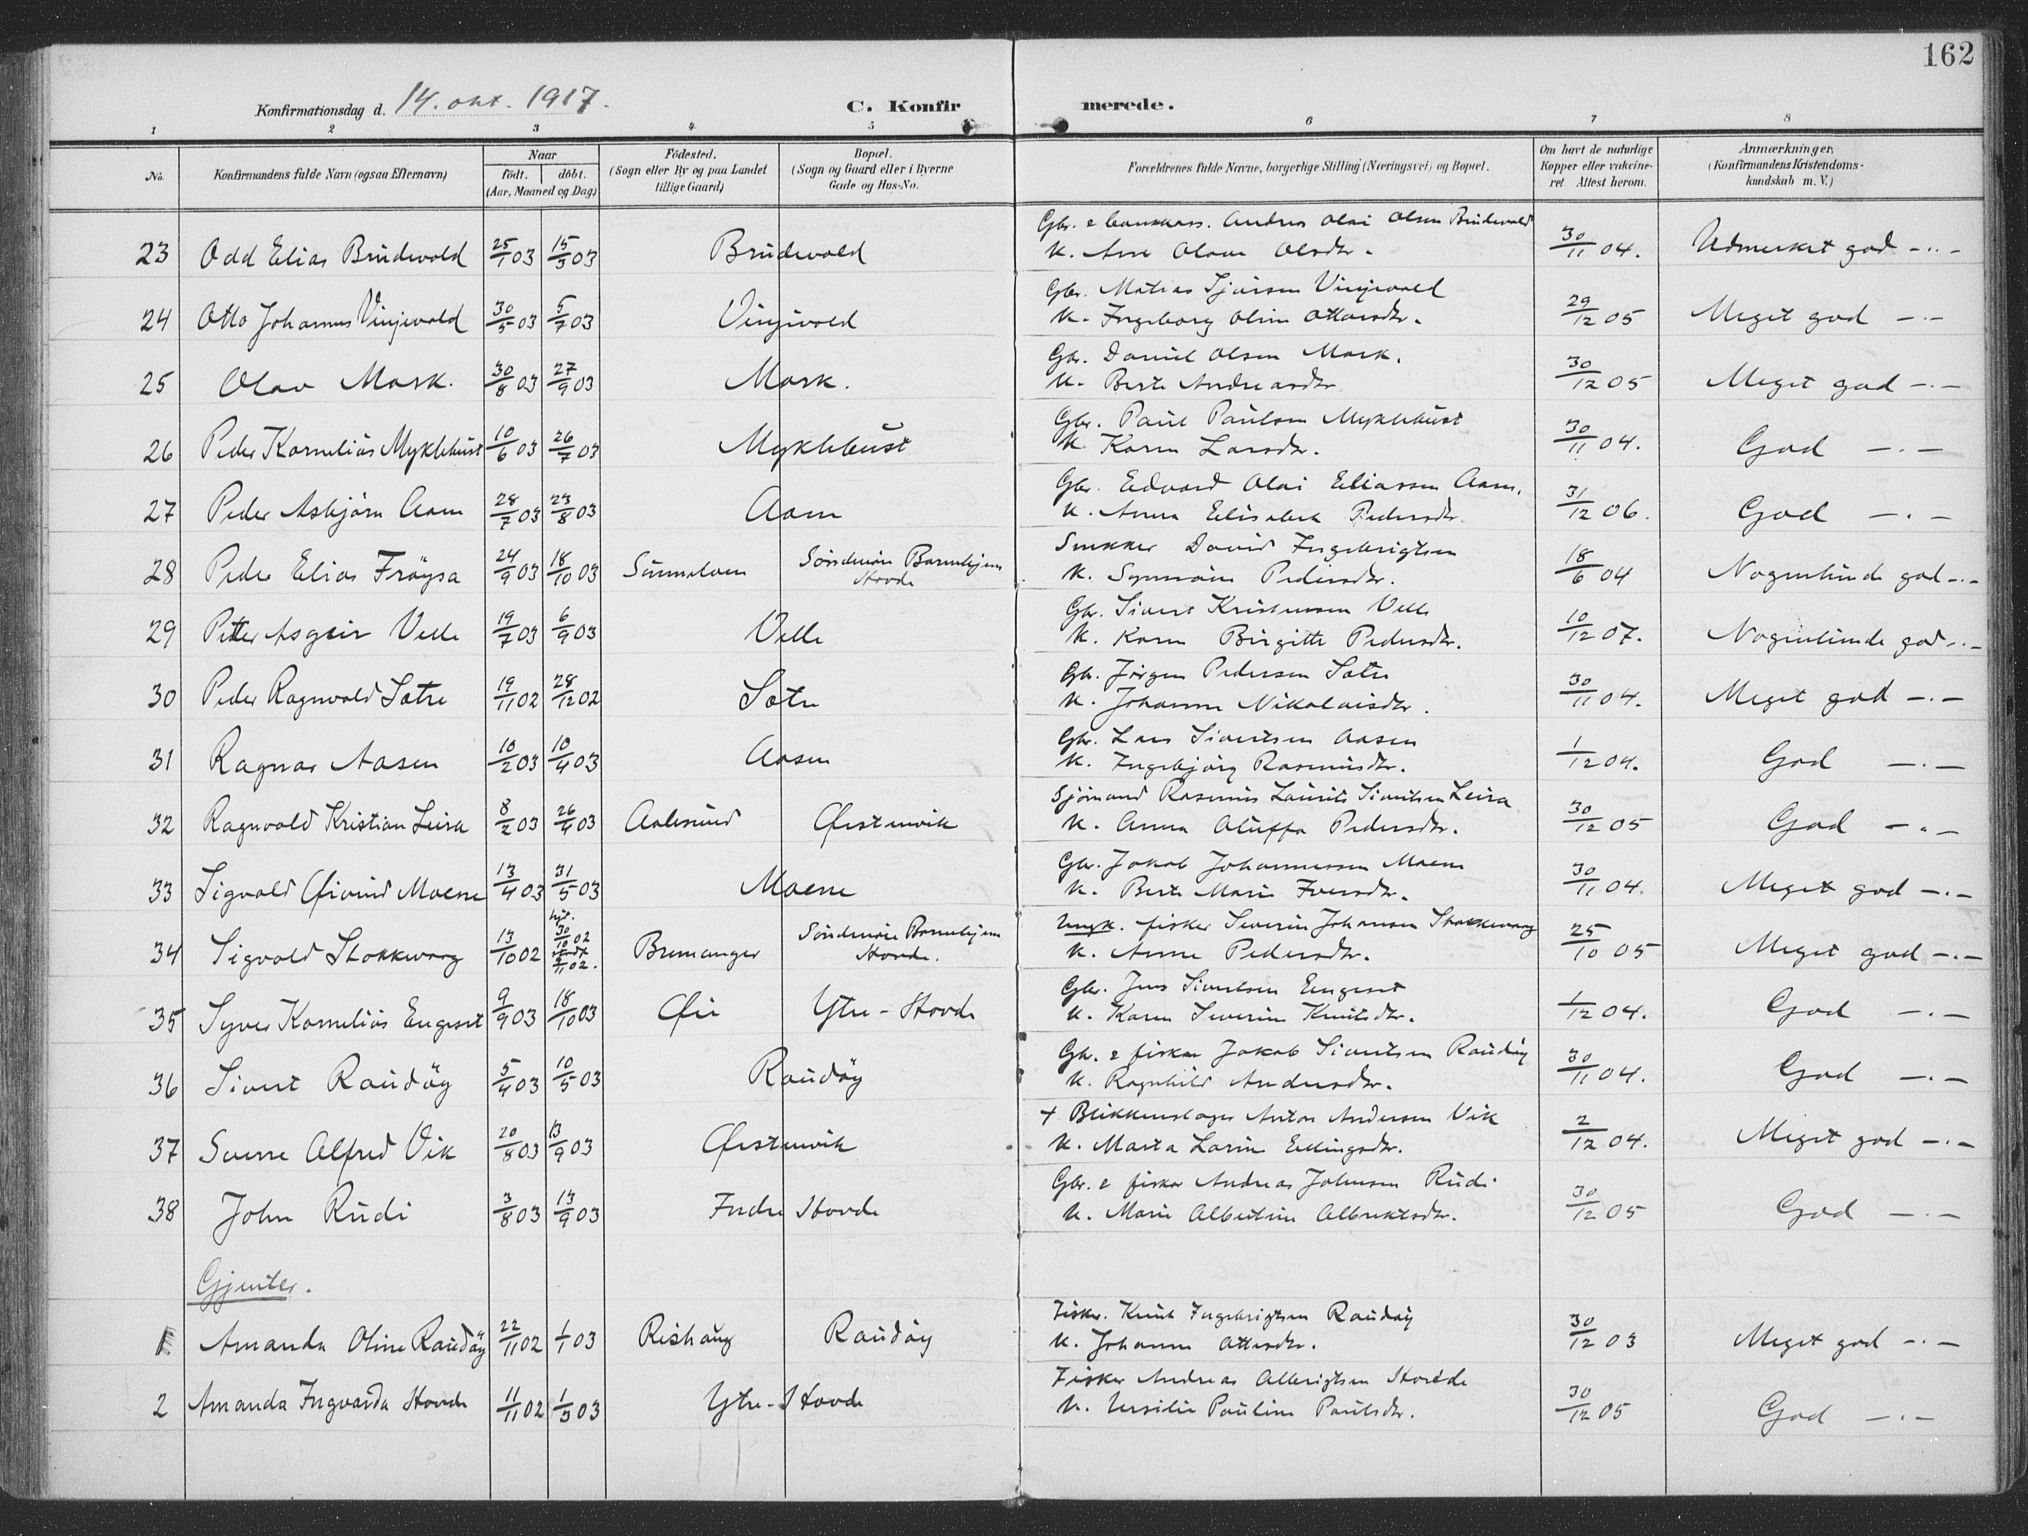 162
Konfirmationsdag d. 14. okt. 1917.
C. Konfirmerede.
1 2 3 4 5 6 7 8
No.
Konfirmandens fulde Navn (ogsaa Efternavn)
Naar
födt. döbt.
(Aar, Maaned og Dag)
Födested.
(Sogn eller By og paa Landet
tillige Gaard)
Bopæl.
(Sogn og Gaard eller i Byerne
Gade og Hus-No.
Forældrenes fulde Navne, borgerlige Stilling (Næringsvei) og Bopæl.
Om havt de naturlige
Kopper eller vakcine-
ret. Attest herom.
Anmærkninger,
(Konfirmandens Kristendoms-
kundskab m. V.)
23 Odd Elias Brudevold 25/1 03 15/3 03 Brudevold
Gbr. & Andreas Olai Olsen Brudevold
K. Olave Olsdtr. 30/11 04. Udmerket god -"-
24 Otto Johannes Vinjevold 30/5 03 5/7 03 Vinjevold
Gbr. Matias Sjursen Vinjevold
K. Ingeborg Oline Ottarsdtr. 29/12 05 Meget god -"-
25 Olav Mork. 30/8 03 27/9 03 Mork.
Gbr. Daniel Olsen Mork.
K. Berte Andreasdtr. 30/12 05 Meget god -"-
26 Peder Kornelius Myklebust 10/6 03 26/7 03 Myklebust
Gbr. Paul Paulsen Myklebust
K. Karen Larsdtr. 30/11 04. God -"-
27 Peder Asbjørn Aam 28/7 03 23/8 03 Aam
Gbr. Edvard Olai Eliassen Aam.
K. Anna Elisabet Pedersdtr. 31/12 06. God -"-
28 Peder Elias Frøysa 24/9 03 18/10 03 Søndmøre Barnehjem
Hovde
Snekker David Ingebrigtsen
K. Synnøve Pedersdtr. 18/6 04 Nogenlunde god -"-
29 Petter Asgeir Velle 19/7 03 6/9 03 Velle
Gbr. Sivert Kristensen Velle
K. Karen Birgitte Pedersdtr. 10/12 07. Nogenlunde god -"-
30 Peder Ragnvald Sætre 19/11 02 28/12 02 Sætre
Gbr. Jørgen Pedersen Sætre
K. Johanne Nikolaisdtr. 30/11 04. Meget god -"-
31 Ragnar Aasen 10/2 03 10/4 03 Aasen
Gbr. Lars Sivertsen Aasen
K. Ingebjørg Rasmusdtr. 1/12 04. God -"-
32 Ragnvald Kristian Leira 8/2 03 26/4 03 Aalesund Ørstenvik
Sjømand Rasmus Laurits Sivertsen Leira
K. Anna Oluffa Pedersdtr. 30/12 05 God -"-
33 Sigvald Øivind Moene 13/4 03 31/5 03 Moene
Gbr. Jakob Johannessen Moene
K. Berte Marie Iversdtr. 30/11 04. Meget god -"-
34 Sigvald Stokkevaag 13/10 02 hjd. 30/10 02 2/11 02. Bremanger Søndmøre Barnehjem
Hovde.
Ungk. fisker Severin Johansen Stokkevaag
K. Anne Pedersdtr. 25/10 05 Meget god -"-
35 Syver Kornelius Engeset 9/9 03 18/10 03 Øie Ytre-Hovde
Gbr. Jens Sivertsen Engeset
K. Karen Severine Knutsdtr. 1/12 04. God -"-
36 Sivert Raudøy 5/4 03 10/5 03 Raudøy
Gbr. & fisker Jakob Sivertsen Raudøy
K. Ragnhild Andersdtr. 30/11 04. God -"-
37 Sverre Alfred Vik 20/8 03 13/9 03 Ørstenvik
+ Blikkenslager Anton Andersen Vik
K. Marta Lovise Ellingsdtr. 2/12 04. Meget god -"-
38 John Rudi 3/8 03 13/9 03 Indre Hovde
Gbr. & fisker Andreas Johnsen Rudi
K. Marie Albertine Albrektsdtr. 30/12 05 God -"-
Gjenter.
1 Amanda Oline Raudøy 22/11 02 1/1 03 Rishaug Raudøy
Fisker. Knut Ingebrigtsen Raudøy
K. Johanne Ottersdtr. 30/12 03 Meget god -"-
2 Amanda Ingvarda Hovde 11/11 02 1/3 03 Ytre-Hovde
Fisker Andreas Albrigtsen Hovde
K. Pauline Paulsdtr. 30/12 05 God -"-